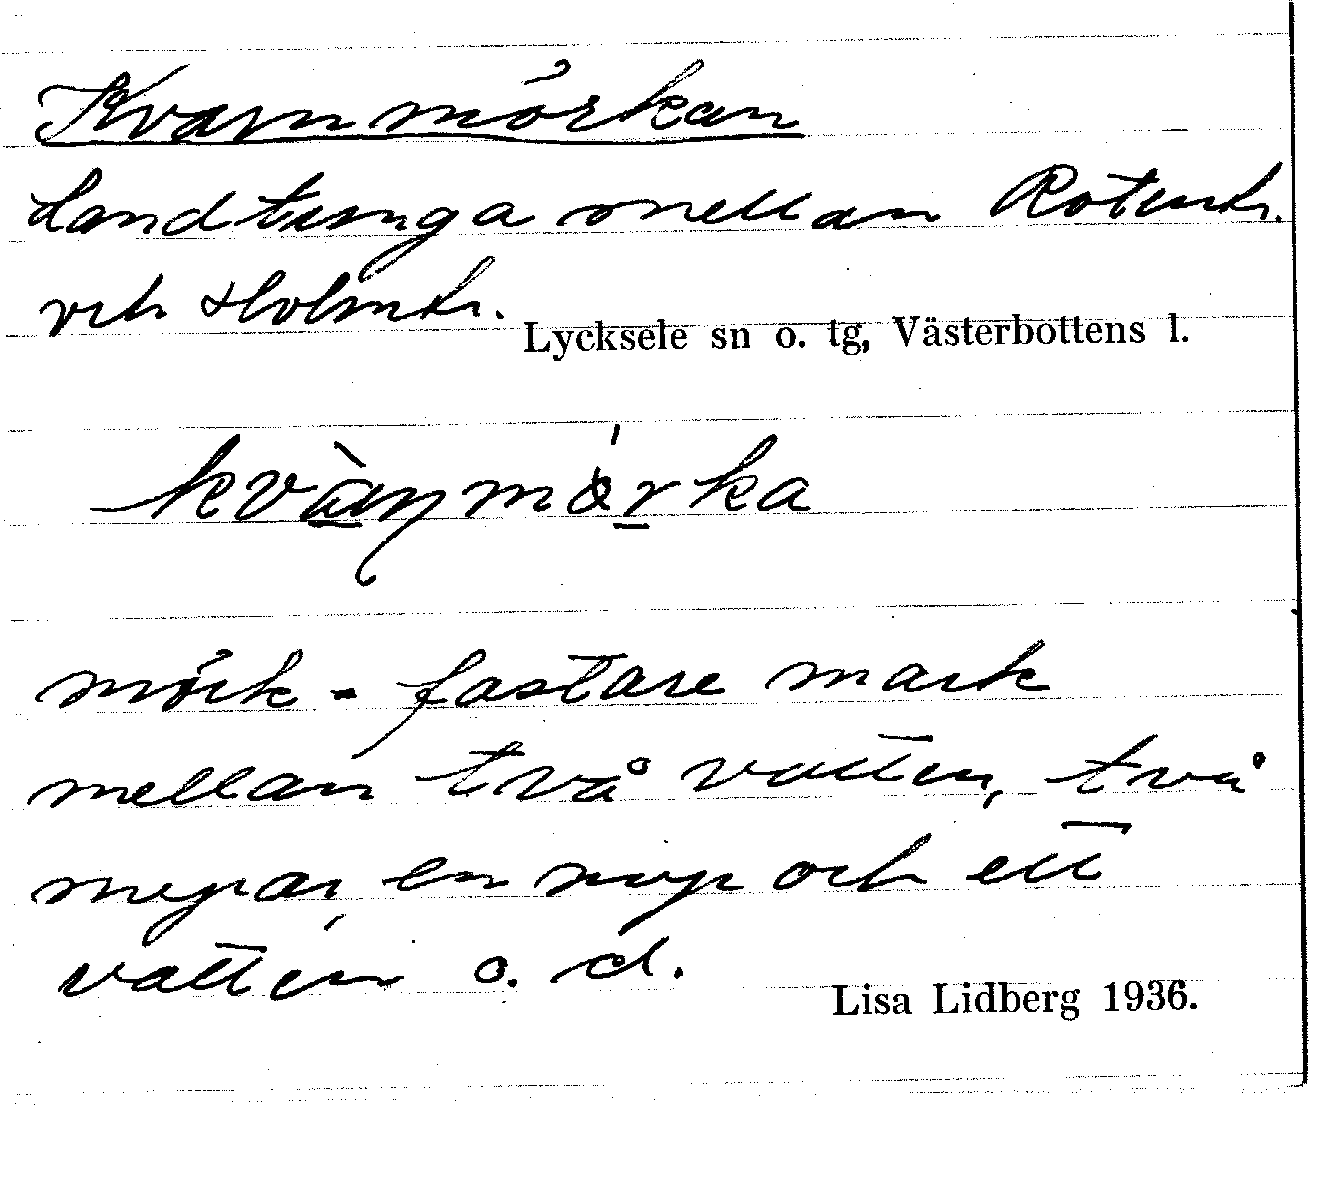 Kvarnmörkan
Landtunga mellan Rotentr.
och Holmtr.
Lycksele sn o. tg, Västerbottens l.
kvànmǿrka
mörk - fastare mark
mellan två vatten, två
myrar, en myr och ett
vatten o. d.
Lisa Lidberg 1936.